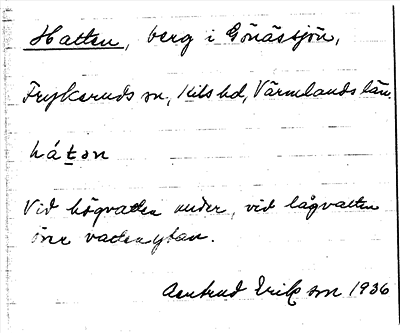 Hatten, berg i Gönässjön,
Frykeruds sn, Kils hd, Värmlands län.
hátən
Vid högvatten under, vid lågvatten
över vattenytan.
Erikson 1936